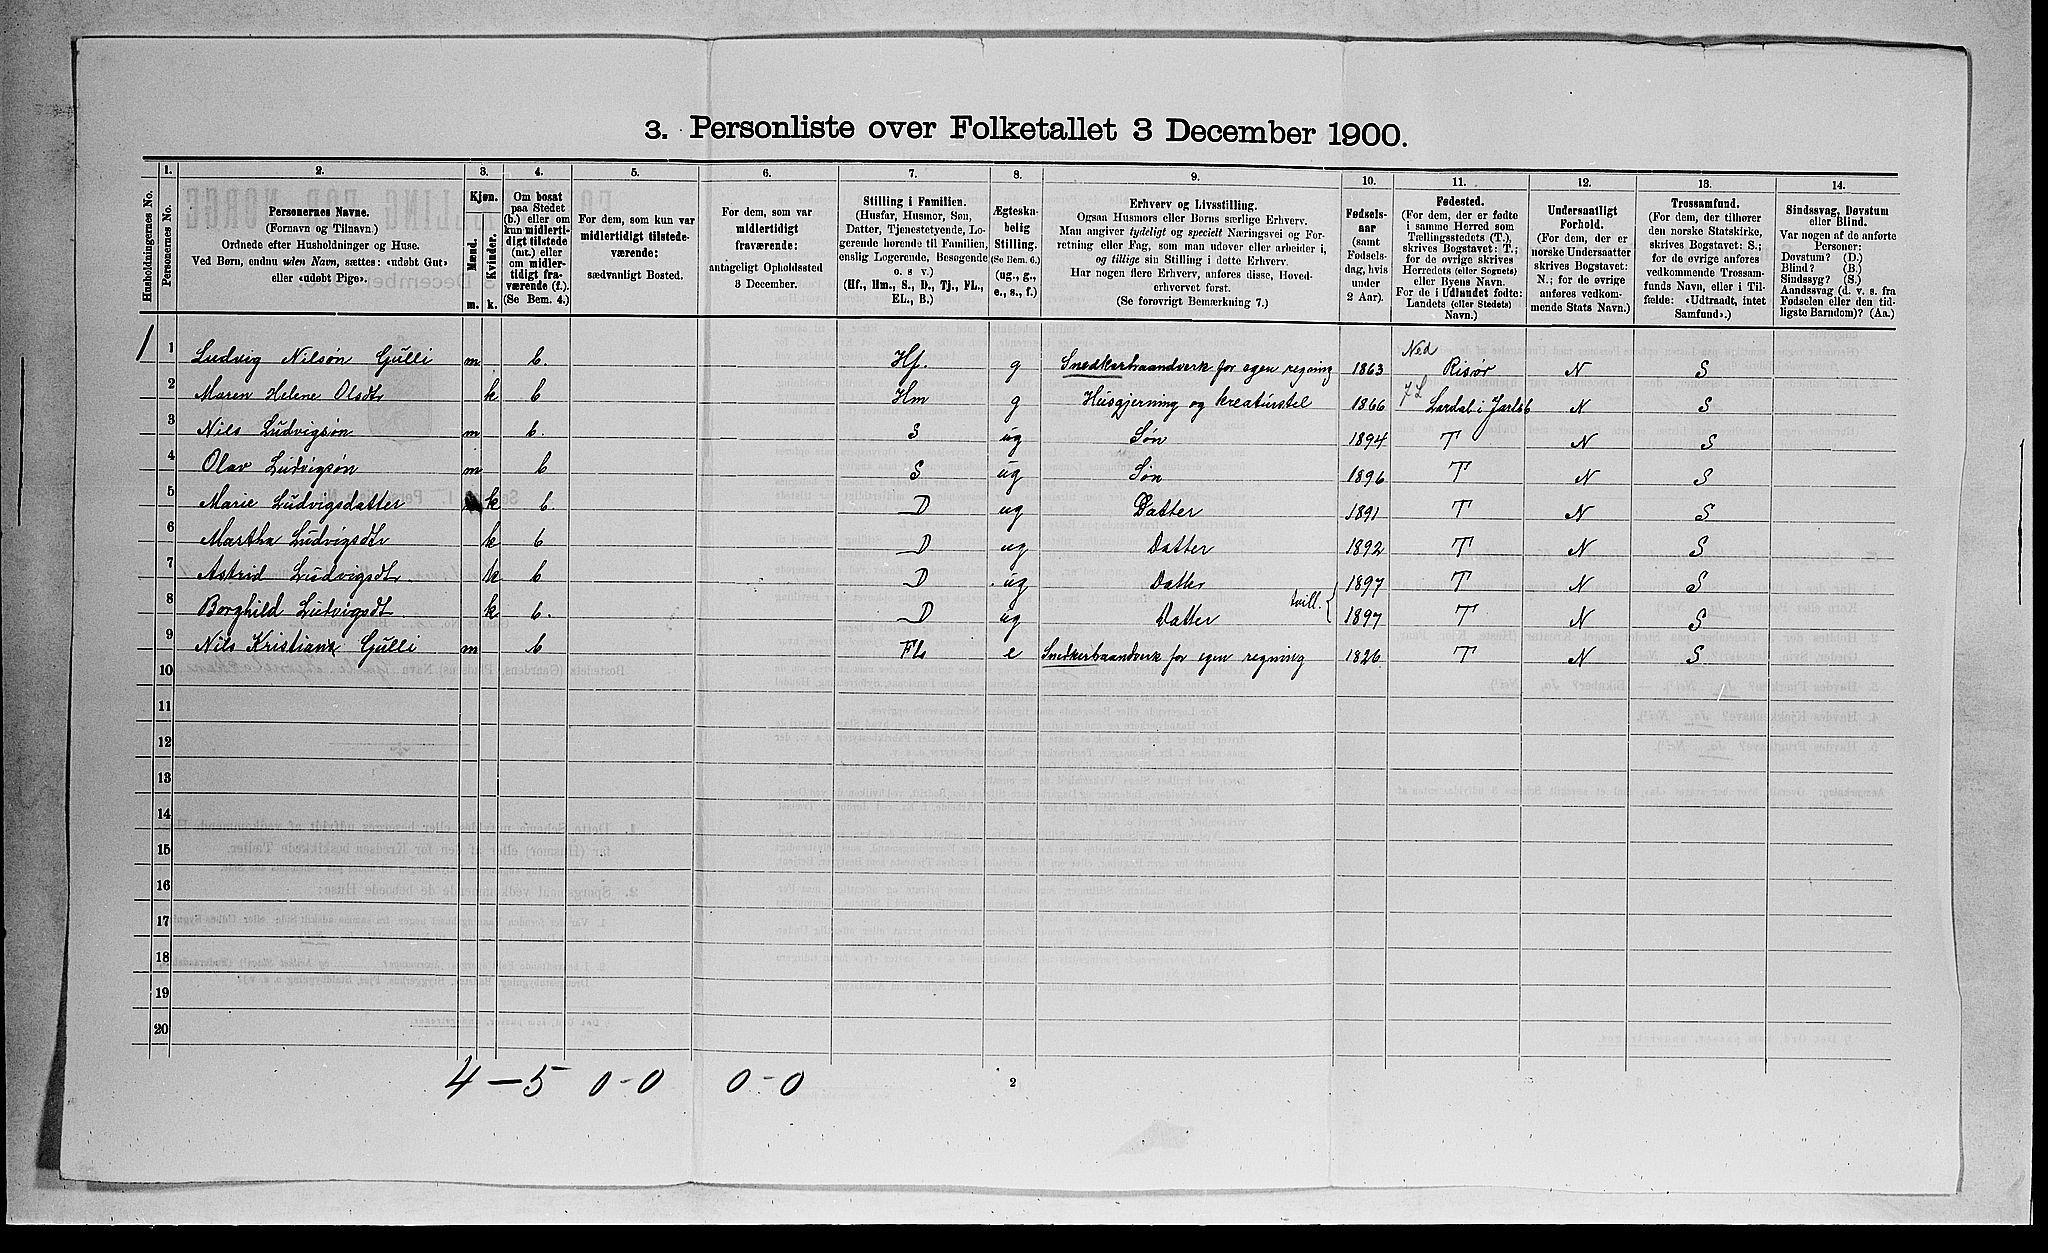 3. Personliste over Folketallet 3 December 1900.
Husholdningernes No.
1.
Personernes No.
2.
Personernes Navne.
(Fornavn og Tilnavn.)
Ordnede efter Husholdninger og Huse.
Ved Børn, endnu uden Navn, sættes: «udøbt Gut»
eller «udøbt Pige».
3.
Kjøn.
Mænd.
m.
Kvinder.
k.
4.
Om bosat
paa Stedet
(b.) eller om
kun midlerti-
digt tilstede
(mt.) eller
om midler-
tidigt fra-
værende (f.).
(Se Bem. 4.)
5.
For dem, som kun var
midlertidigt tilstede-
værende:
sædvanligt Bosted.
6.
For dem, som var
midlertidigt
fraværende:
antageligt Opholdssted
3 December.
7.
Stilling i Familien.
(Husfar, Husmor, Søn,
Datter, Tjenestetyende, Lo-
gerende hørende til Familien,
enslig Logerende, Besøgende
o. s v.)
(Hf., Hm., S., D., Tj., FL.,
EL., B.)
8.
Ægteska-
belig
Stilling.
(Se Bem. 6.)
(ug., g.,
e., s., f.)
9.
Erhverv og Livsstilling.
Ogsaa Husmors eller Børns særlige Erhverv.
Man angiver tydeligt og specielt Næringsvei og For-
retning eller Fag, som man udover eller arbeider i,
og tillige sin Stilling i dette Erhverv.
Har nogen flere Erhverv, anføres disse, Hoved-
erhvervet først.
(Se forøvrigt Bemærkning 7.)
10.
Fødsels-
aar
(samt
Fødsels-
dag, hvis
under
2 Aar).
11.
Fødested.
(For dem, der er fødte
i samme Herred som
Tællingsstedets (T.),
skrives Bogstavet: T.;
for de øvrige skrives
Herredets (eller Sognets)
eller Byens Navn.
For de i Udlandet fødte:
Landets (eller Stedets)
Navn.)
12.
Undersaatligt
Forhold.
(For dem, der er
norske Undersaatter
skrives Bogstavet:
N.; for de øvrige
anføres vedkom-
mende Stats Navn.)
13.
Trossamfund.
(For dem, der tilhører
den norske Statskirke,
skrives Bogstavet: S.;
for de øvrige anføres
vedkommende Trossam-
funds Navn, eller i Til-
fælde: «Udtraadt, intet
Samfund».)
14.
Sindssvag, Døvstum
eller Blind.
Var nogen af de anførte
Personer:
Døvstum? (D.)
Blind? (B.)
Sindssyg? (S.)
Aandssvag (d. v. s. fra
Fødselen eller den tid-
ligste Barndom)? (Aa.)
1 1 Ludvig Nilsøn Gulli m b. Hf. g Snedkerhaandverk for egen regning 1863 Ned Risør N S
2 Maren Helene Olsdtr k b Hm g Husgjerning og kreaturstel 1866 7L Lardal i Jarlsb N S
3 Nils Ludvigsøn m b. S ug Søn 1894 T N S
4 Olav Ludvigsøn m b S ug Søn 1896 T N S
5 Marie Ludvigsdatter k b. D ug Datter 1891 T N S
6 Martha Ludvigsdtr k b D ug Datter 1892 T N S
7 Astrid Ludvigsdtr. k b D ug Datter 1897 T N S
8 Borghild Ludvigsdt. k b. D ug Datter tvill. { 1897 T N S
9 Nils Kristian Gulli m b FL e Snedkerhaandverk for egen regning 1826 T N S
10
11
12
13
14
15
16
17
18
19
20
4 – 5 0 - 0 0 - 0
2